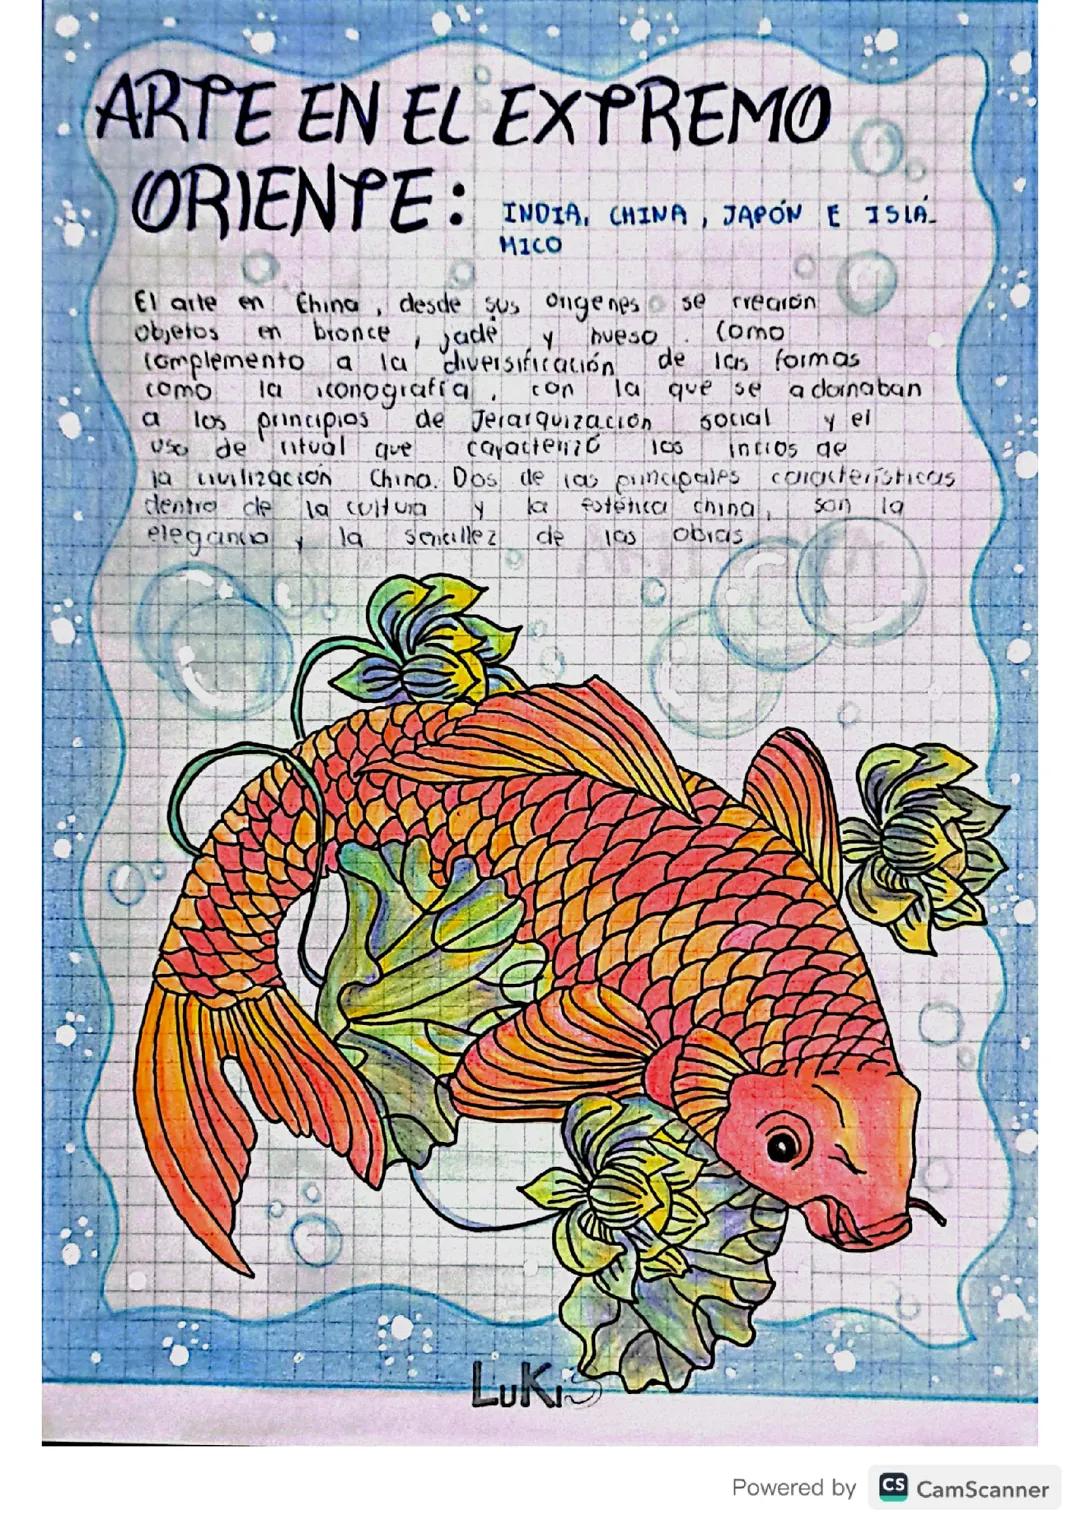 ARTE EN EL EXTREMO
ORIENTE:
INDIA, CHINA, JAPÓN E ISLÁ-
MICO
El arte en China, desde sus origenes se crearón
objetos en bronce, jade y hueso. Como
complemento a la diversificación de las formas
como la iconografía, con la que se adornaban
a los principios de Jerarquización social y el
uso de ritual que caracterizó los inicios de
la civilización China. Dos de las principales características
dentro de la cultura y la estética china, son la
elegancia y la sencillez de las obras
LuKis
Powered by CS CamScanner